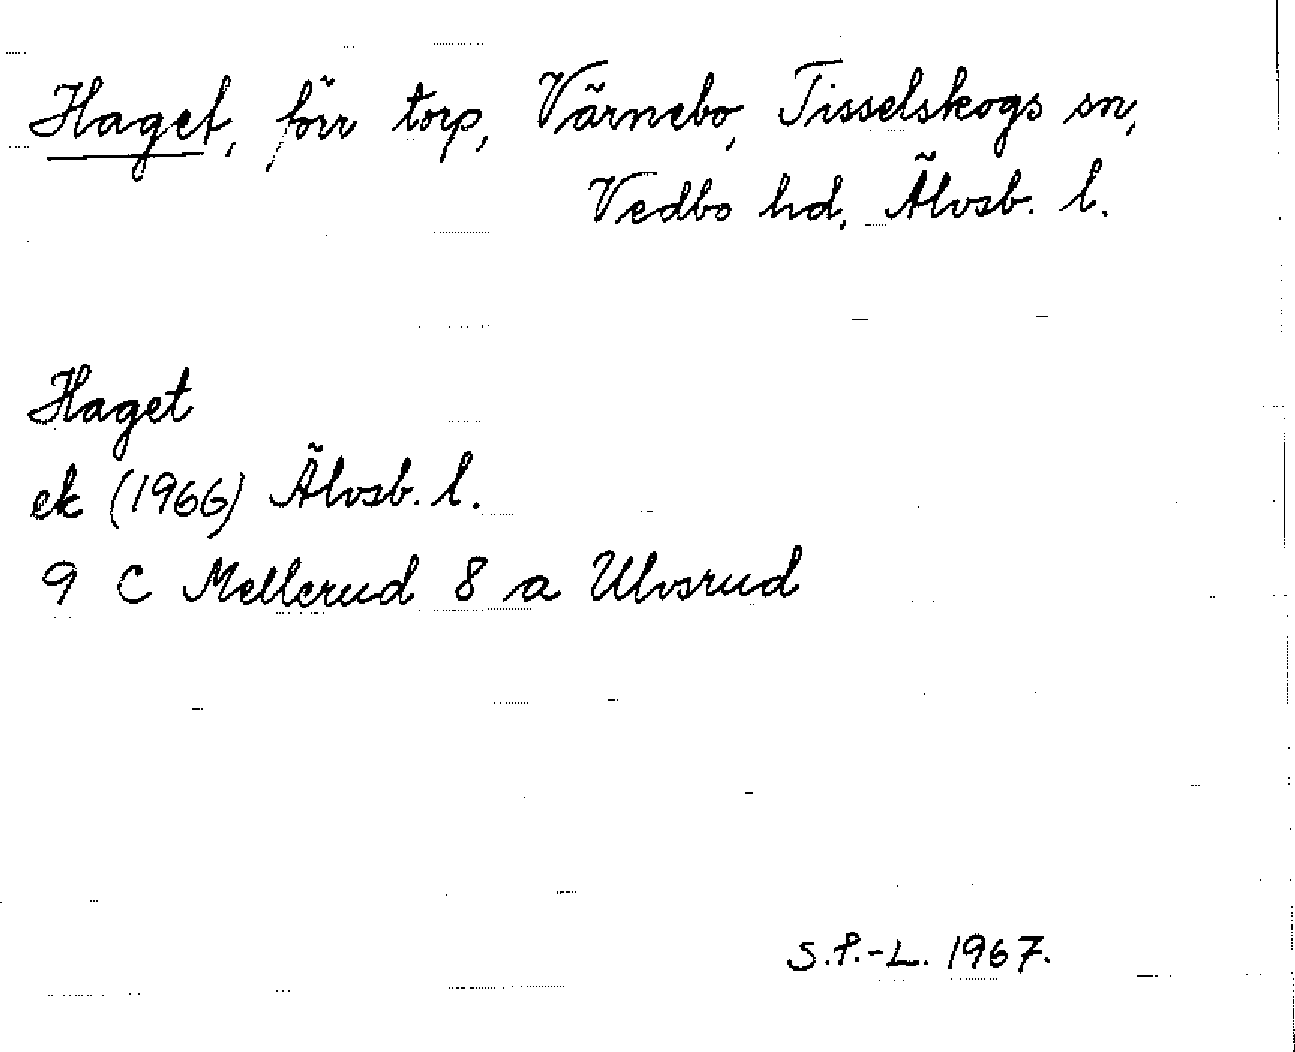 Haget, förr torp, Värnebo, Tisselskogs sn,
Vedbo hd, Älvsb. l.
Haget
ek (1966) Älvsb. l.
9 C Mellerud 8 a Ulvsrud
S.P.-L. 1967.